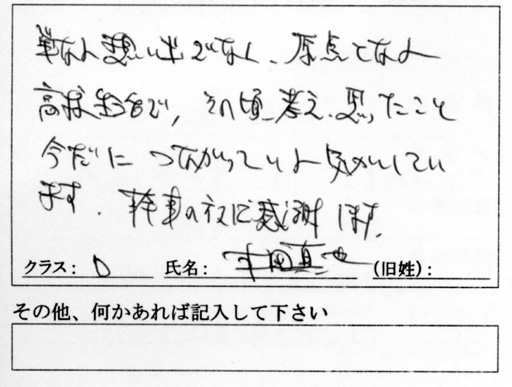 単なる想い出でなく、原点となる
高校生活で、その頃考え、思ったこと
今だに つながっている気がしてい
ます。幹事の皆に感謝します。
クラス: D 氏名: 真也 (旧姓):
その他、何かあれば記入して下さい